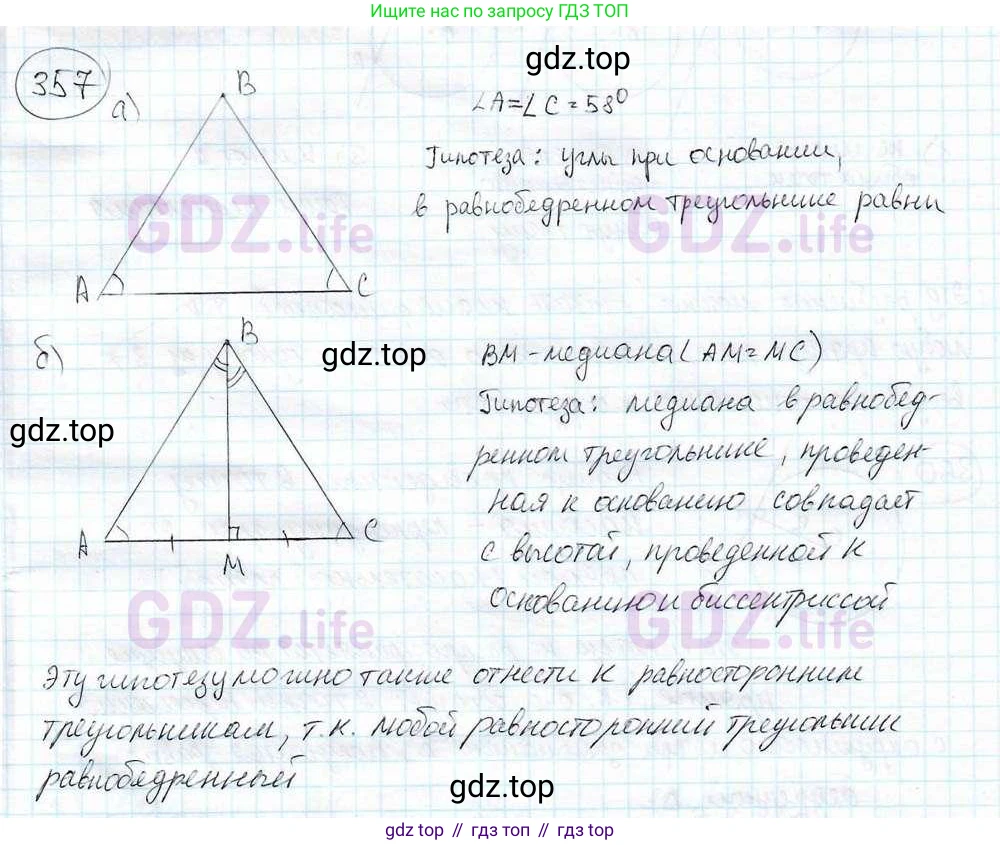 Ищите нас по запросу ГДЗ ТОП
gdz.top
357
а)
B
A
C
∠A=∠C=58⁰
Гипотеза: углы при основании,
в равнобедренном треугольнике равны
GDZ.life
GDZ.life
б)
B
gdz.top
gdz.top
A
M
C
BM - медиана (AM=MC)
Гипотеза: медиана в равнобед-
ренном треугольнике, проведен-
ная к основанию совпадает
с высотой, проведенной к
основанию и биссектриссой
GDZ.life
GDZ.life
Эту гипотезу можно также отнести к равносторонним
треугольникам, т.к. любой равносторонний треугольник
равнобедренный
gdz.top
gdz.top // гдз топ // gdz top